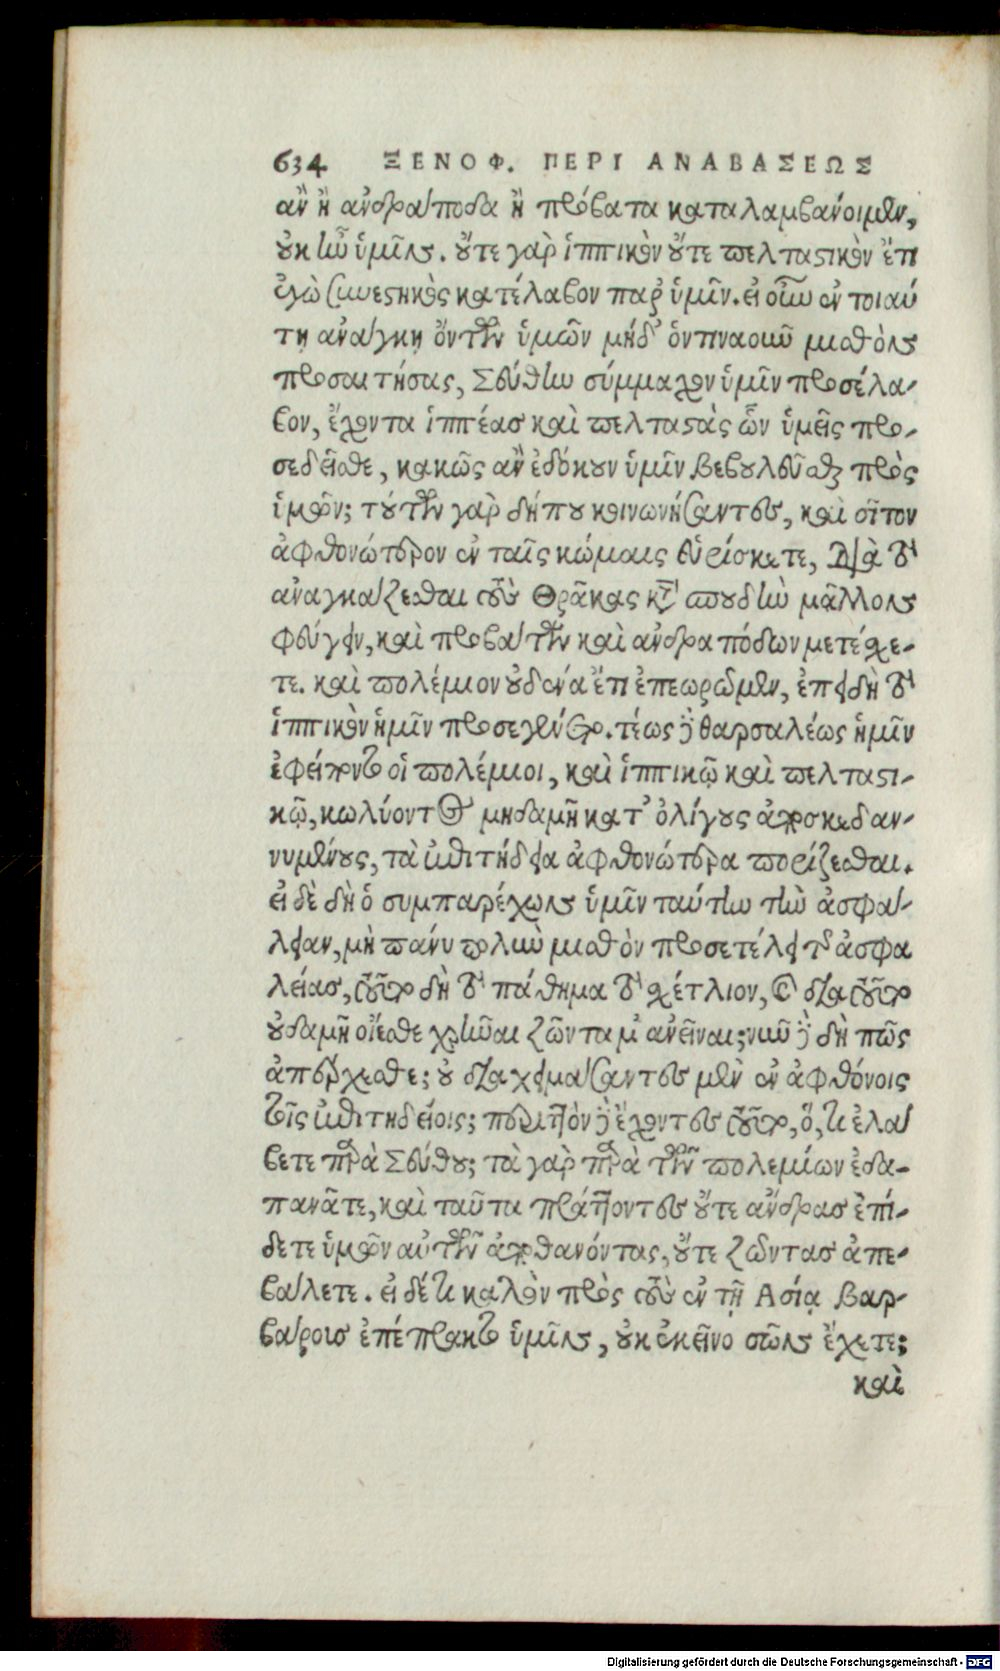 634 ΞΕΝΟΦ. ΠΕΡΙ ΑΝΑΒΑΣΕΩΣ
ἂν ἢ ἀνδράποδα ἢ πρόβατα καταλαμβάνοιμεν,
οὐκ ἦν ὑμῖν. οὔτε γὰρ ἱππικὸν οὔτε πελταστικὸν ἔτι
ἐγὼ συνεστηκὸς κατέλαβον παρ' ὑμῖν. εἰ οὖν ἐν τοιαύ
τῃ ἀνάγκῃ ὄντων ὑμῶν μηδ' ὁντιναοῦν μισθὸν
προσαιτήσας, Σεύθην σύμμαχον ὑμῖν προσέλα-
βον, ἔχοντα ἱππέας καὶ πελταστὰς ὧν ὑμεῖς προ-
σεδεῖσθε, κακῶς ἂν ἐδόκουν ὑμῖν βεβουλεῦσθαι πρὸς
ὑμῶν; τούτων γὰρ δήπου κοινωνήσαντες, καὶ σῖτον
ἀφθονώτερον ἐν ταῖς κώμαις εὑρίσκετε, διὰ τὸ
ἀναγκάζεσθαι τοὺς Θρᾷκας κατὰ σπουδὴν μᾶλλον
φεύγειν, καὶ προβάτων καὶ ἀνδραπόδων μετέσχε-
τε. καὶ πολέμιον οὐδένα ἔτι ἐπεωρῶμεν, ἐπειδὴ τὸ
ἱππικὸν ἡμῖν προσεγένετο. τέως δὲ θαρσαλέως ἡμῖν
ἐφείποντο οἱ πολέμιοι, καὶ ἱππικῷ καὶ πελταστι-
κῷ, κωλύοντες μηδαμῆ κατ' ὀλίγους ἀποσκεδαν-
νυμένους, τὰ ἐπιτήδεια ἀφθονώτερα πορίζεσθαι.
εἰ δὲ δὴ ὁ συμπαρέχων ὑμῖν ταύτην τὴν ἀσφά-
λειαν, μὴ πάνυ πολὺν μισθὸν προσετέλει τῆς ἀσφα
λείας, τοῦτο δὴ τὸ πάθημα τὸ σχέτλιον, καὶ διὰ τοῦτο
οὐδαμῆ οἴεσθε χρῆναι ζῶντα μ' ἀνεῖναι; νῦν δὲ δὴ πῶς
ἀπέρχεσθε; οὐ διαχειμάσαντες μὲν ἐν ἀφθόνοις
τοῖς ἐπιτηδείοις; περιττὸν δὲ ἔχοντες τοῦτο, ὅ, τι ἐλά
βετε παρὰ Σεύθου; τὰ γὰρ παρὰ τῶν πολεμίων ἐδα-
πανᾶτε, καὶ ταῦτα πράττοντες οὔτε ἄνδρας ἐπί-
δετε ὑμῶν αὐτῶν ἀποθανόντας, οὔτε ζῶντας ἀπε-
βάλετε. εἰ δέ τι καλὸν πρὸς τοὺς ἐν τῇ Ἀσίᾳ βαρ-
βάροις ἐπέπρακτο ὑμῖν, οὐκ ἐκεῖνο σῶν ἔχετε;
καὶ
Digitalisierung gefördert durch die Deutsche Forschungsgemeinschaft - DFG